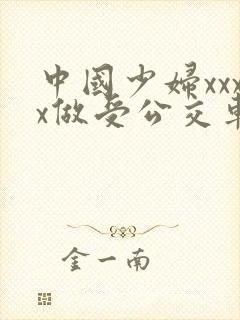 中國少婦xxx
x做受公交車
金一南